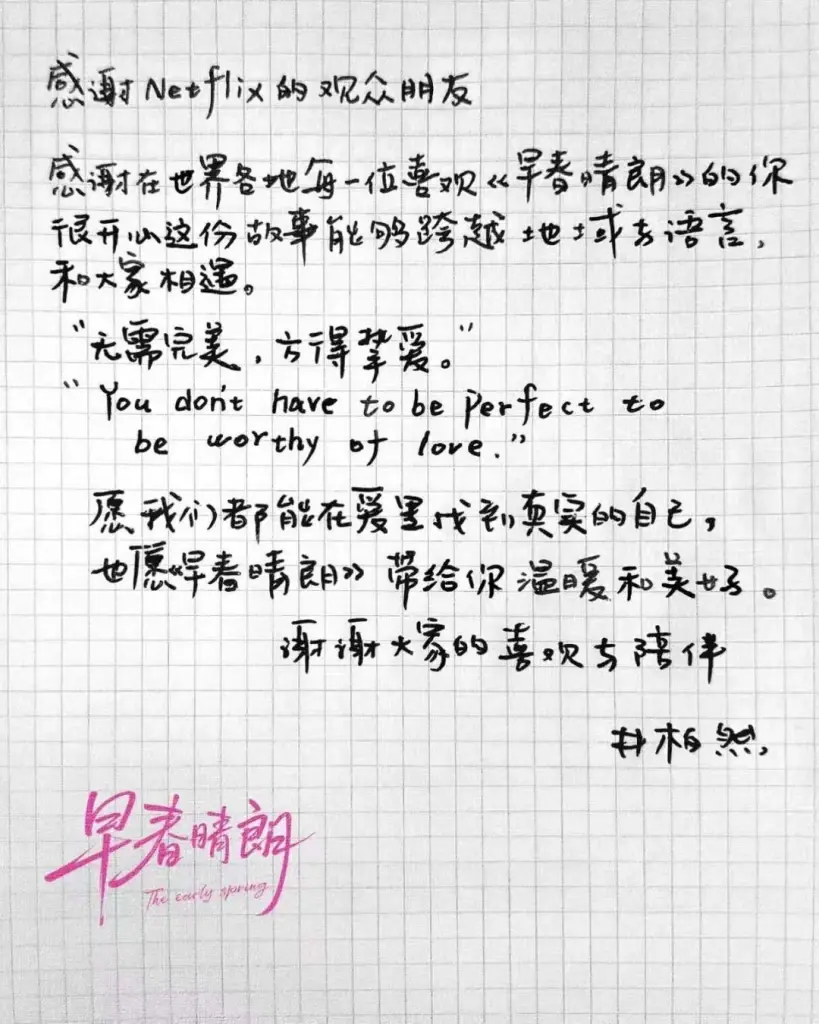 感谢Netflix的观众朋友
感谢在世界各地每一位喜欢《早春晴朗》的你
很开心这份故事能够跨越地域与语言,
和大家相遇。
“无需完美,方得挚爱。”
“You don't have to be perfect to
be worthy of love.”
愿我们都能在爱里找到真实的自己,
也愿《早春晴朗》带给你温暖和美好。
谢谢大家的喜欢与陪伴
井柏然
早春晴朗
The early spring